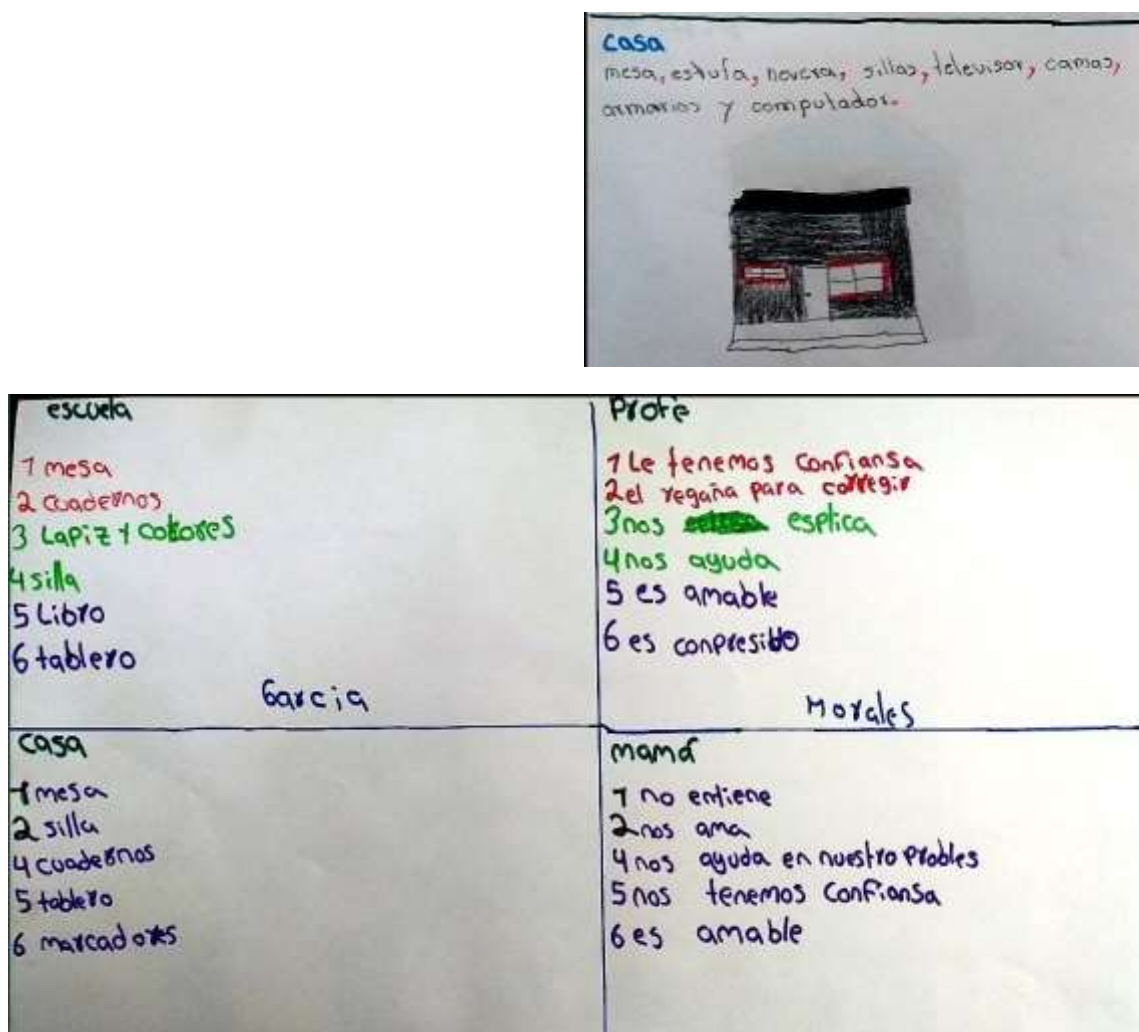 casa
mesa, estufa, nevera, sillas, televisor, camas,
armarios y computador.
escuela
1 mesa
2 cuadernos
3 Lapiz y colores
4 silla
5 Libro
6 tablero
Garcia
Profe
1 Le tenemos confiansa
2 el regaña para corregir
3 nos esplica
4 nos ayuda
5 es amable
6 es conpresibo
Morales
casa
1 mesa
2 silla
4 cuadernos
5 tablero
6 marcadores
mamá
1 no entiene
2 nos ama
4 nos ayuda en nuestro probles
5 nos tenemos confiansa
6 es amable